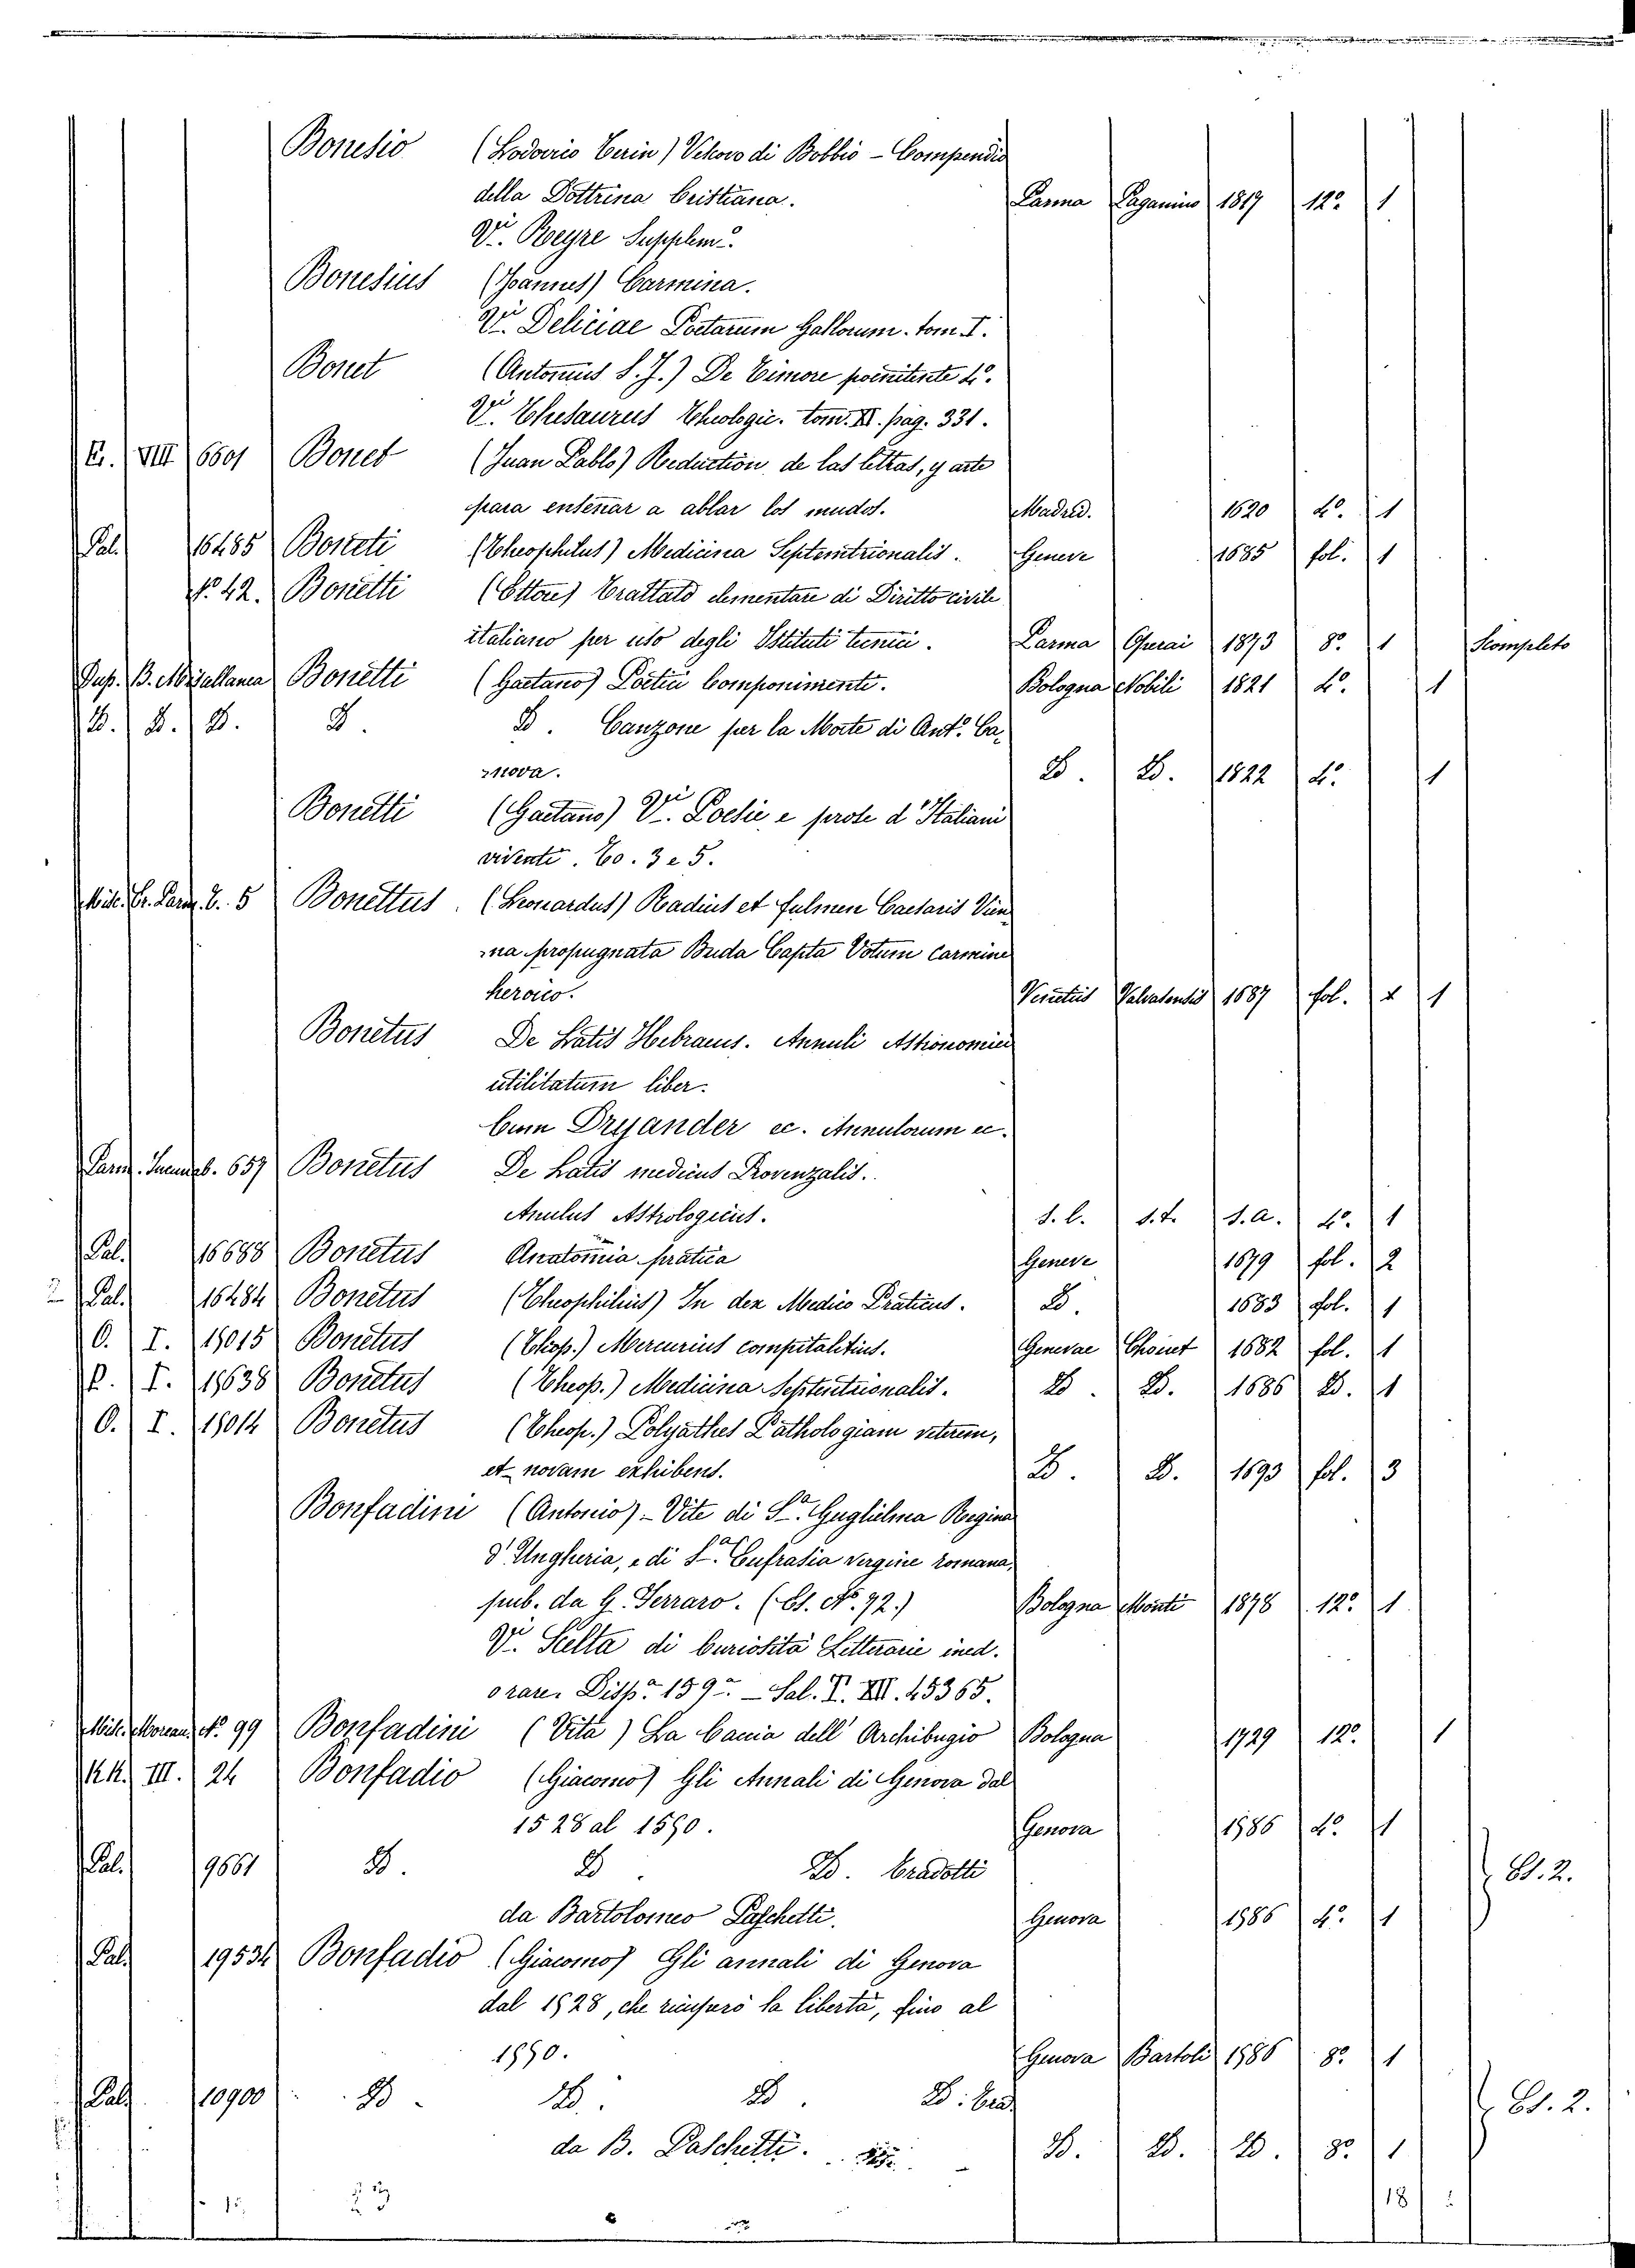 Bonesio (Lodovico Cerin) Vescovo di Bobbio - Compendio
della Dottrina Cristiana. Parma Paganino 1817 12º 1
Vi. Reyre Supplem.
Bonesius (Joannes) Carmina.
Vi. Deliciae Poetarum Gallorum. tom I.
Bonet (Antonius S. J.) De Timore poenitente 4º.
Vi. Thesaurus Theologic. tom. XI. pag. 331.
E. VIII 6601 Bonet (Juan Pablo) Reduction de las letras, y arte
para ensenar a ablar los mudos. Madrid. 1620 4º. 1
Pal. 16485 Boneti (Theophilus) Medicina Septentrionalis. Geneve 1685 fol. 1
Nº. 42. Bonetti (Ettore) Trattato elementare di Diritto civile
italiano per uso degli Istituti tecnici. Parma 1873 8º 1 Completo
Dup. B. Miscellanea Bonetti (Gaetano) Poetici Componimenti. Bologna Nobili 1821 4º. 1
D. D. D. D. D. Canzone per la Morte di Antº. Ca-
nova. D. D. 1822 4º. 1
Bonetti (Gaetano) Vi. Poesie e prose d'Italiani
viventi. To. 3 e 5.
Misc. Er. Parm. 5 Bonettus. (Leonardus) Radius et fulmen Caesaris Vien
na propugnata Buda Capta Votum Carmine
heroico. Venetiis Valvasensis 1687 fol. 1
Bonetus De Latis Hebraeus. Annuli Astronomici
utilitatum liber.
Cum Dryander ec. Annulorum ec.
Parm. Incunab. 657 Bonetus De Latis medicus Provenzalis.
Anulus Astrologicus. S. l. s. t. S. a. 4º. 1
Pal. 16688 Bonetus Anatomia pratica Geneve 1679 fol. 2
Pal. 16484 Bonetus (Theophilus) In dex Medico Praticus. D. 1683 fol. 1
O. I. 19015 Bonetus (Theop.) Mercurius compitalitius. Genevae Chouet 1682 fol. 1
P. I. 19638 Bonetus (Theop.) Medicina Septentrionalis. D. D. 1686 D. 1
O. I. 19014 Bonetus (Theop.) Polyathes Pathologiam veterem,
et novam exhibens. D. D. 1693 fol. 3
Bonfadini (Antonio) - Vite di Sª. Guglielma Regina
d'Ungheria, e di Sª. Eufrasia vergine romana,
pub. da G. Ferraro. (Es. Nº. 72.) Bologna Monti 1878 12º. 1
Vi. Scelta di Curiosità Letterarie ined.
o rare. Dispª. 159ª. - Sal. T. XII. 45365.
Misc. Moreau. Nº 99 Bonfadini (Vita) La Caccia dell'Archibugio Bologna 1729 12º. 1
KK. III. 24 Bonfadio (Giacomo) Gli Annali di Genova dal
1528 al 1550. Genova 1586 4º 1
Pal. 9661 D. D. D. Tradotti
da Bartolomeo Paschetti. Genova 1586 4º. 1 Es. 2.
Pal. 19534 Bonfadio (Giacomo) Gli annali di Genova
dal 1528, che ricuperò la libertà, fino al
1550. Genova Bartoli 1586 8º 1
Pal. 10900 D. D. D. D. Trad.
da B. Paschetti. D. D. D. 8º. 1 Es. 2.
15 23 18